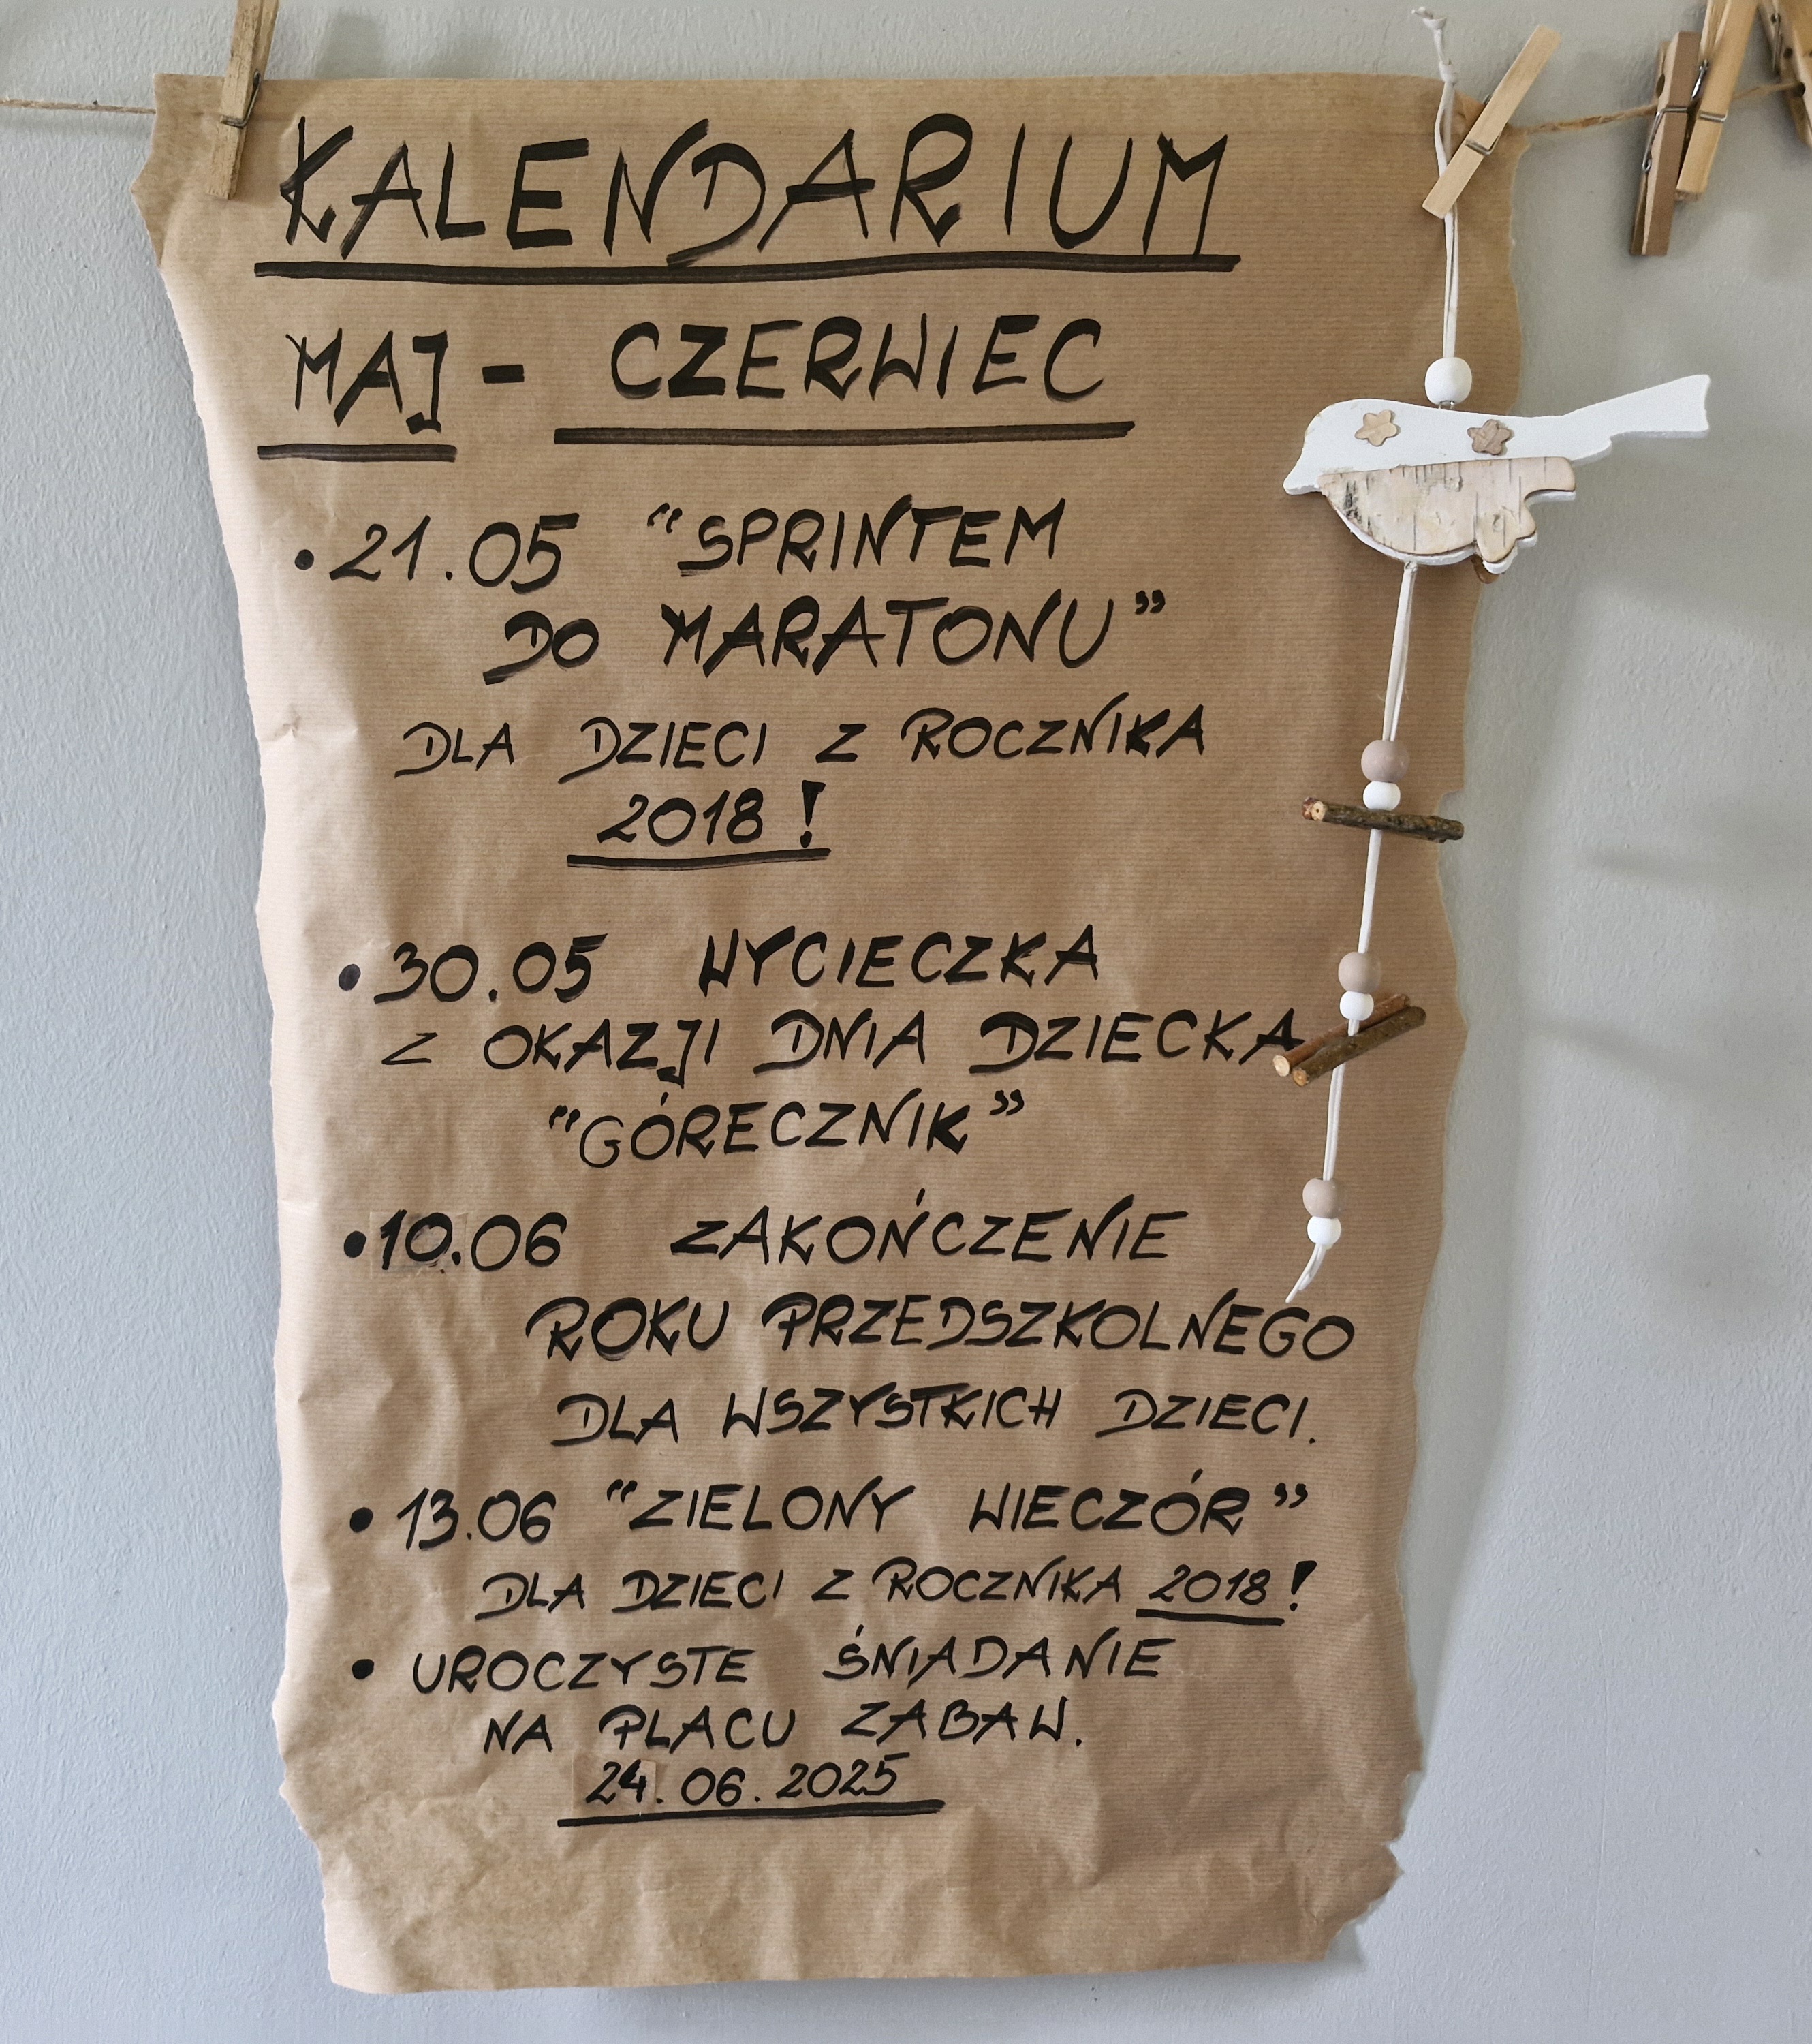 KALENDARIUM
MAJ - CZERWIEC
• 21.05 "SPRINTEM
DO MARATONU"
DLA DZIECI Z ROCZNIKA
2018!
• 30.05 WYCIECZKA
Z OKAZJI DNIA DZIECKA
"GÓRECZNIK"
• 10.06 ZAKOŃCZENIE
ROKU PRZEDSZKOLNEGO
DLA WSZYSTKICH DZIECI.
• 13.06 "ZIELONY WIECZÓR"
DLA DZIECI Z ROCZNIKA 2018!
• UROCZYSTE ŚNIADANIE
NA PLACU ZABAW.
24.06.2025